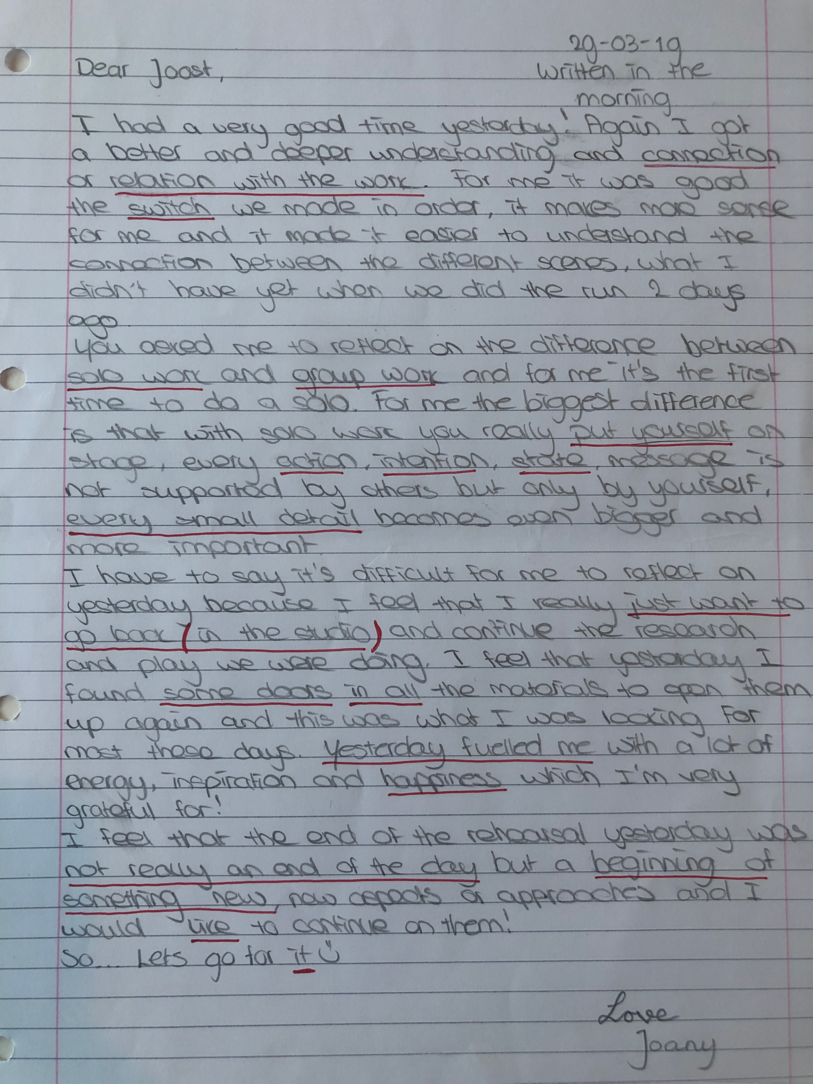 29-03-19
Dear Joost,
Written in the
morning
I had a very good time yesterday! Again I got
a better and deeper understanding and connection
or relation with the work. For me it was good
the switch we made in order, it makes more sense
for me and it made it easier to understand the
connection between the different scenes, what I
didn't have yet when we did the run 2 days
ago.
You asked me to reflect on the difference between
solo work and group work and for me it's the first
time to do a solo. For me the biggest difference
is that with solo work you really put yourself on
stage, every action, intention, state, message is
not supported by others but only by yourself,
every small detail becomes even bigger and
more important.
I have to say it's difficult for me to reflect on
yesterday because I feel that I really just want to
go back (in the studio) and continue the research
and play we were doing. I feel that yesterday I
found some doors in all the materials to open them
up again and this was what I was looking for
most these days. Yesterday fuelled me with a lot of
energy, inspiration and happiness which I'm very
grateful for!
I feel that the end of the rehearsal yesterday was
not really an end of the day but a beginning of
something new, new aspects or approaches and I
would like to continue on them!
So... Lets go for it
Love
Joany